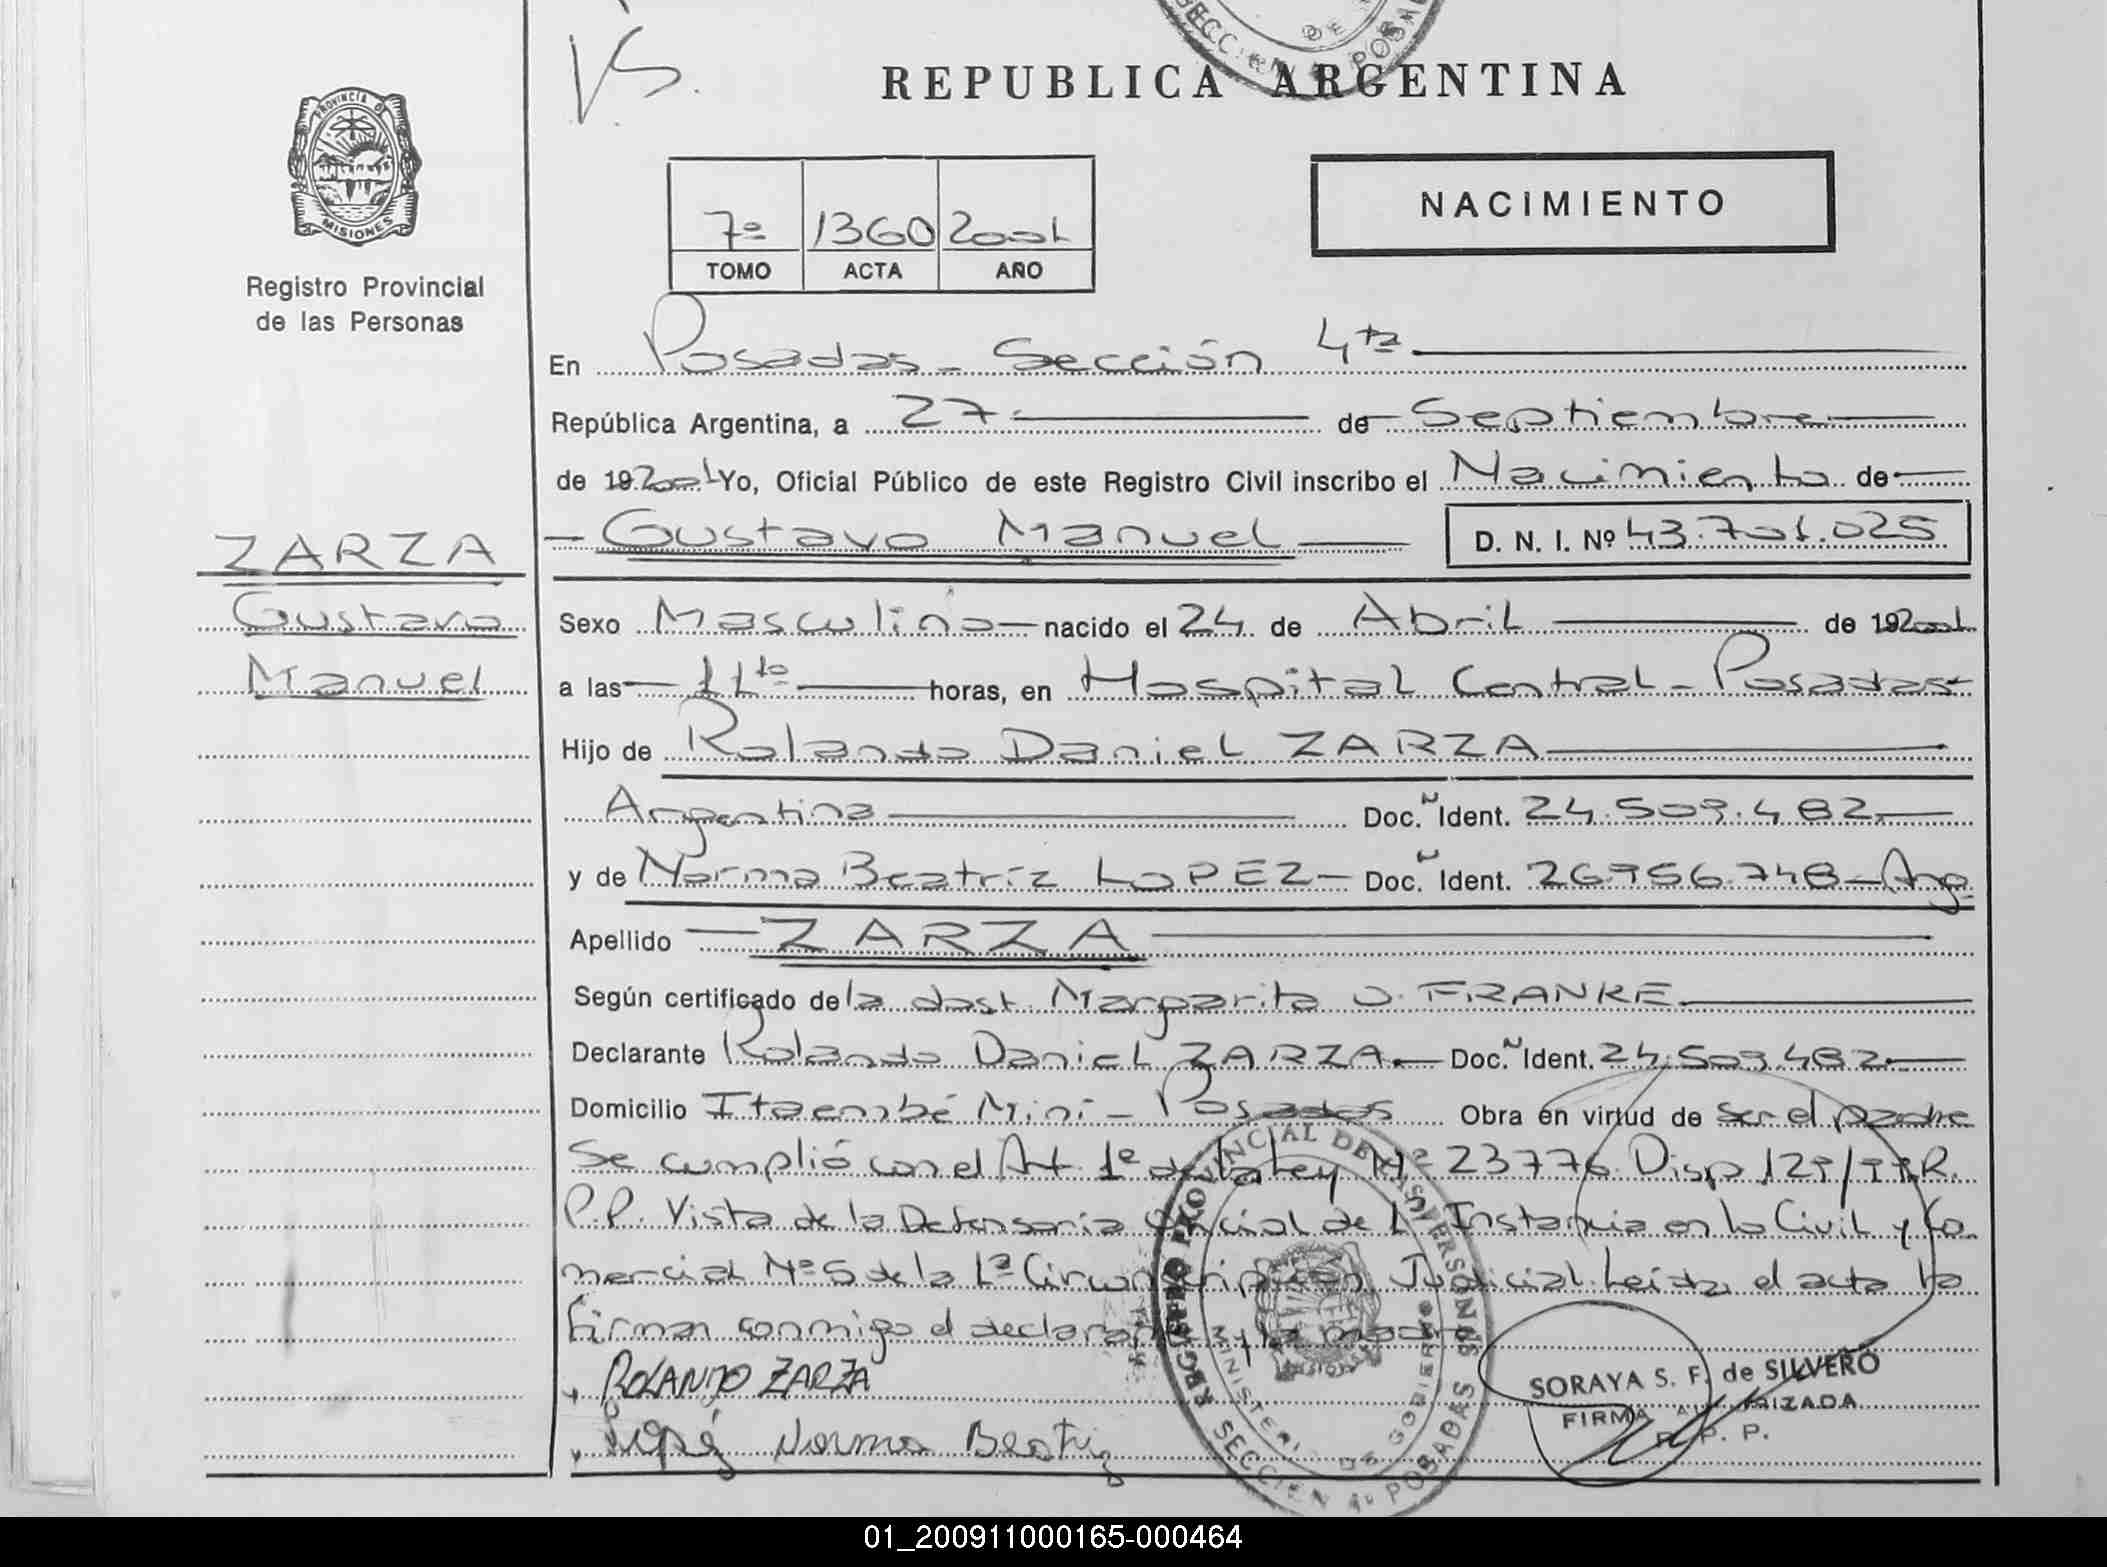 REPUBLICA ARGENTINA
PROVINCIA DE
MISIONES
Registro Provincial
de las Personas
NACIMIENTO
7º 1360 2001
TOMO ACTA AÑO
En Posadas - Sección 4ta
República Argentina, a 27 de Septiembre
de 19 2001 Yo, Oficial Público de este Registro Civil inscribo el Nacimiento de
Gustavo Manuel D. N. I. Nº 43.701.025
ZARZA
Gustavo
Manuel
Sexo Masculino nacido el 24 de Abril de 19 2001
a las 11 to horas, en Hospital Central - Posadas
Hijo de Rolando Daniel ZARZA
Argentina Doc. Ident. 24.509.482
y de Norma Beatríz LOPEZ - Doc. Ident. 26.956.748 - Arg.
Apellido ZARZA
Según certificado de la obst. Margarita FRANKE
Declarante Rolando Daniel ZARZA Doc. Ident. 24.509.482
Domicilio Itaembé Miní - Posadas Obra en virtud de ser el padre
Se cumplió con el Art 1º de la Ley Nº 23776 Disp 129/99 R.
P.P. Vista de la Defensoría Oficial de 1º Instancia en lo Civil y Co-
mercial Nº 5 de la 1ª Circunscripción Judicial. Leída el acta la
firman conmigo el declarante y la madre
ROLANDO ZARZA
Norma Beatriz
REGISTRO PROVINCIAL DE LAS PERSONAS
MINISTERIO DE GOBIERNO
SECCION 4º POSADAS
SORAYA S. F. de SILVERO
FIRMA AUTORIZADA
R. P. P.
01_200911000165-000464